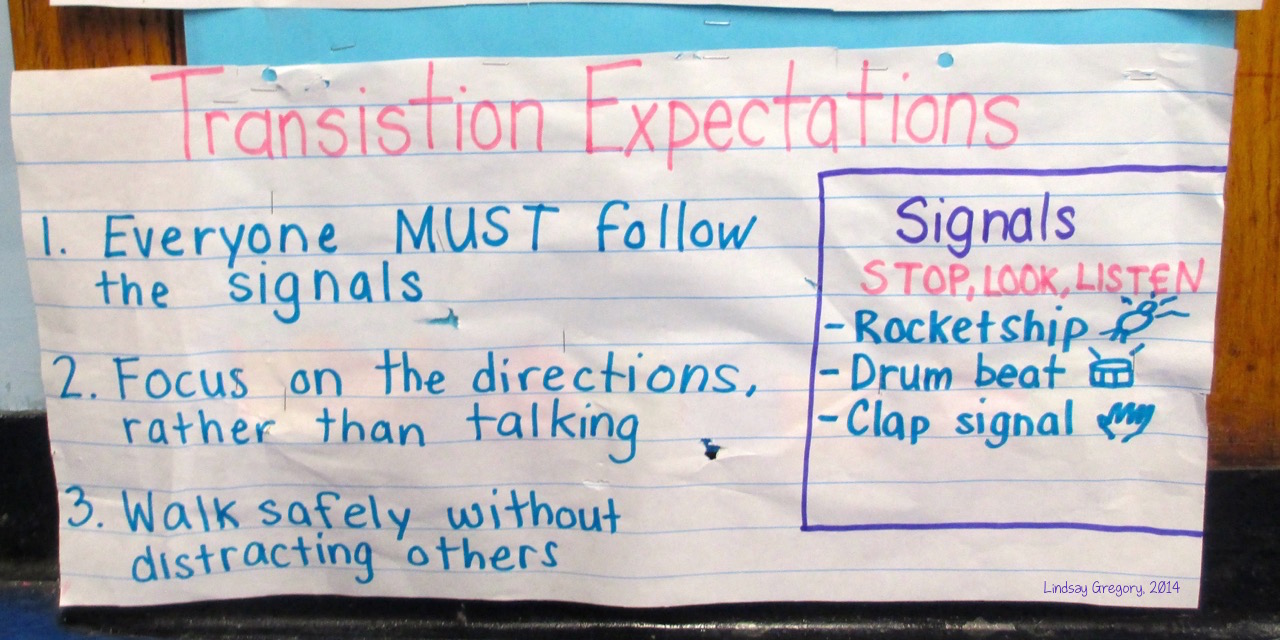 Transistion Expectations
1. Everyone MUST follow
the signals
2. Focus on the directions,
rather than talking
3. Walk safely without
distracting others
Signals
STOP, LOOK, LISTEN
- Rocketship
- Drum beat
- Clap signal
Lindsay Gregory, 2014